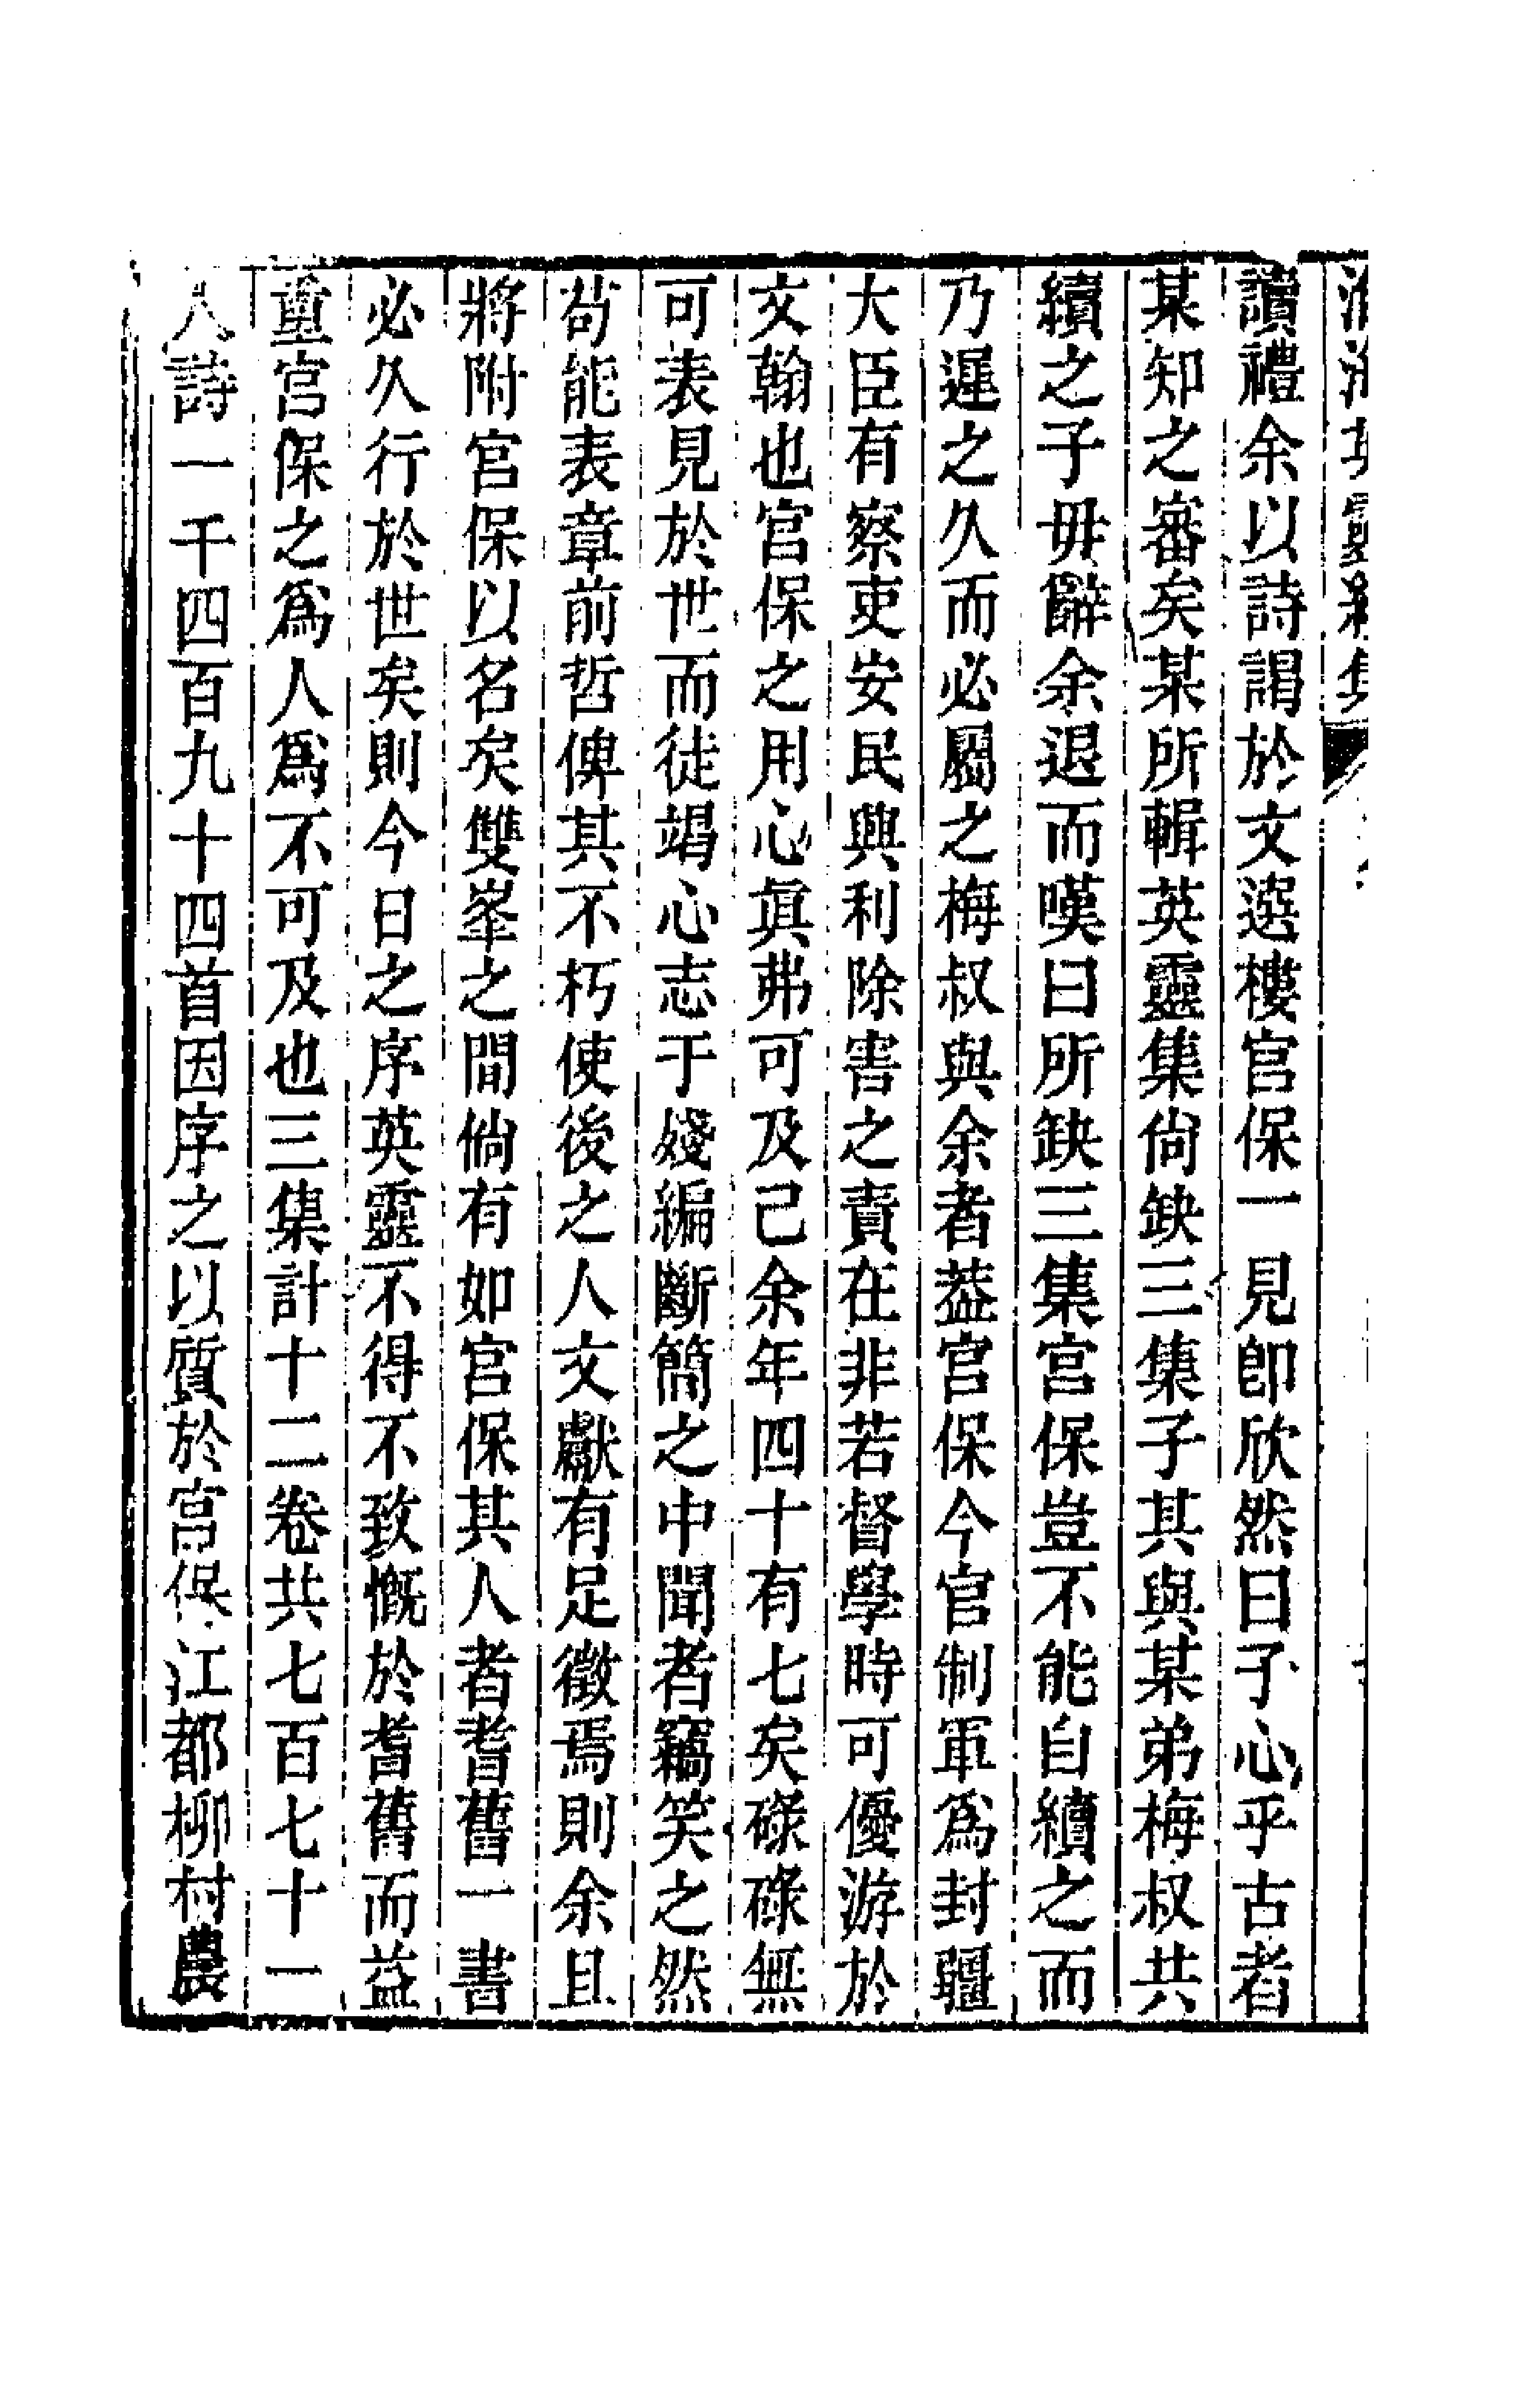 淮海英靈續集
讀禮余以詩謁於文選樓宫保一見卽欣然曰子心乎古者
某知之審矣某所輯英靈集尙缺三集子其與某弟梅叔共
續之子毋辭余退而嘆曰所缺三集宫保豈不能自續之而
乃遲之久而必屬之梅叔與余者葢宫保今官制軍爲封疆
大臣有察吏安民興利除害之責在非若督學時可優游於
文翰也宫保之用心眞弗可及己余年四十有七矣碌碌無
可表見於世而徒竭心志于殘編斷簡之中聞者竊笑之然
苟能表章前哲俾其不朽使後之人文獻有足徵焉則余且
將附宫保以名矣雙峯之間倘有如宫保其人者耆舊一書
必久行於世矣則今日之序英靈不得不致慨於耆舊而益
重宫保之爲人爲不可及也三集計十二卷共七百七十一
人詩一千四百九十四首因序之以質於宫保江都柳村農